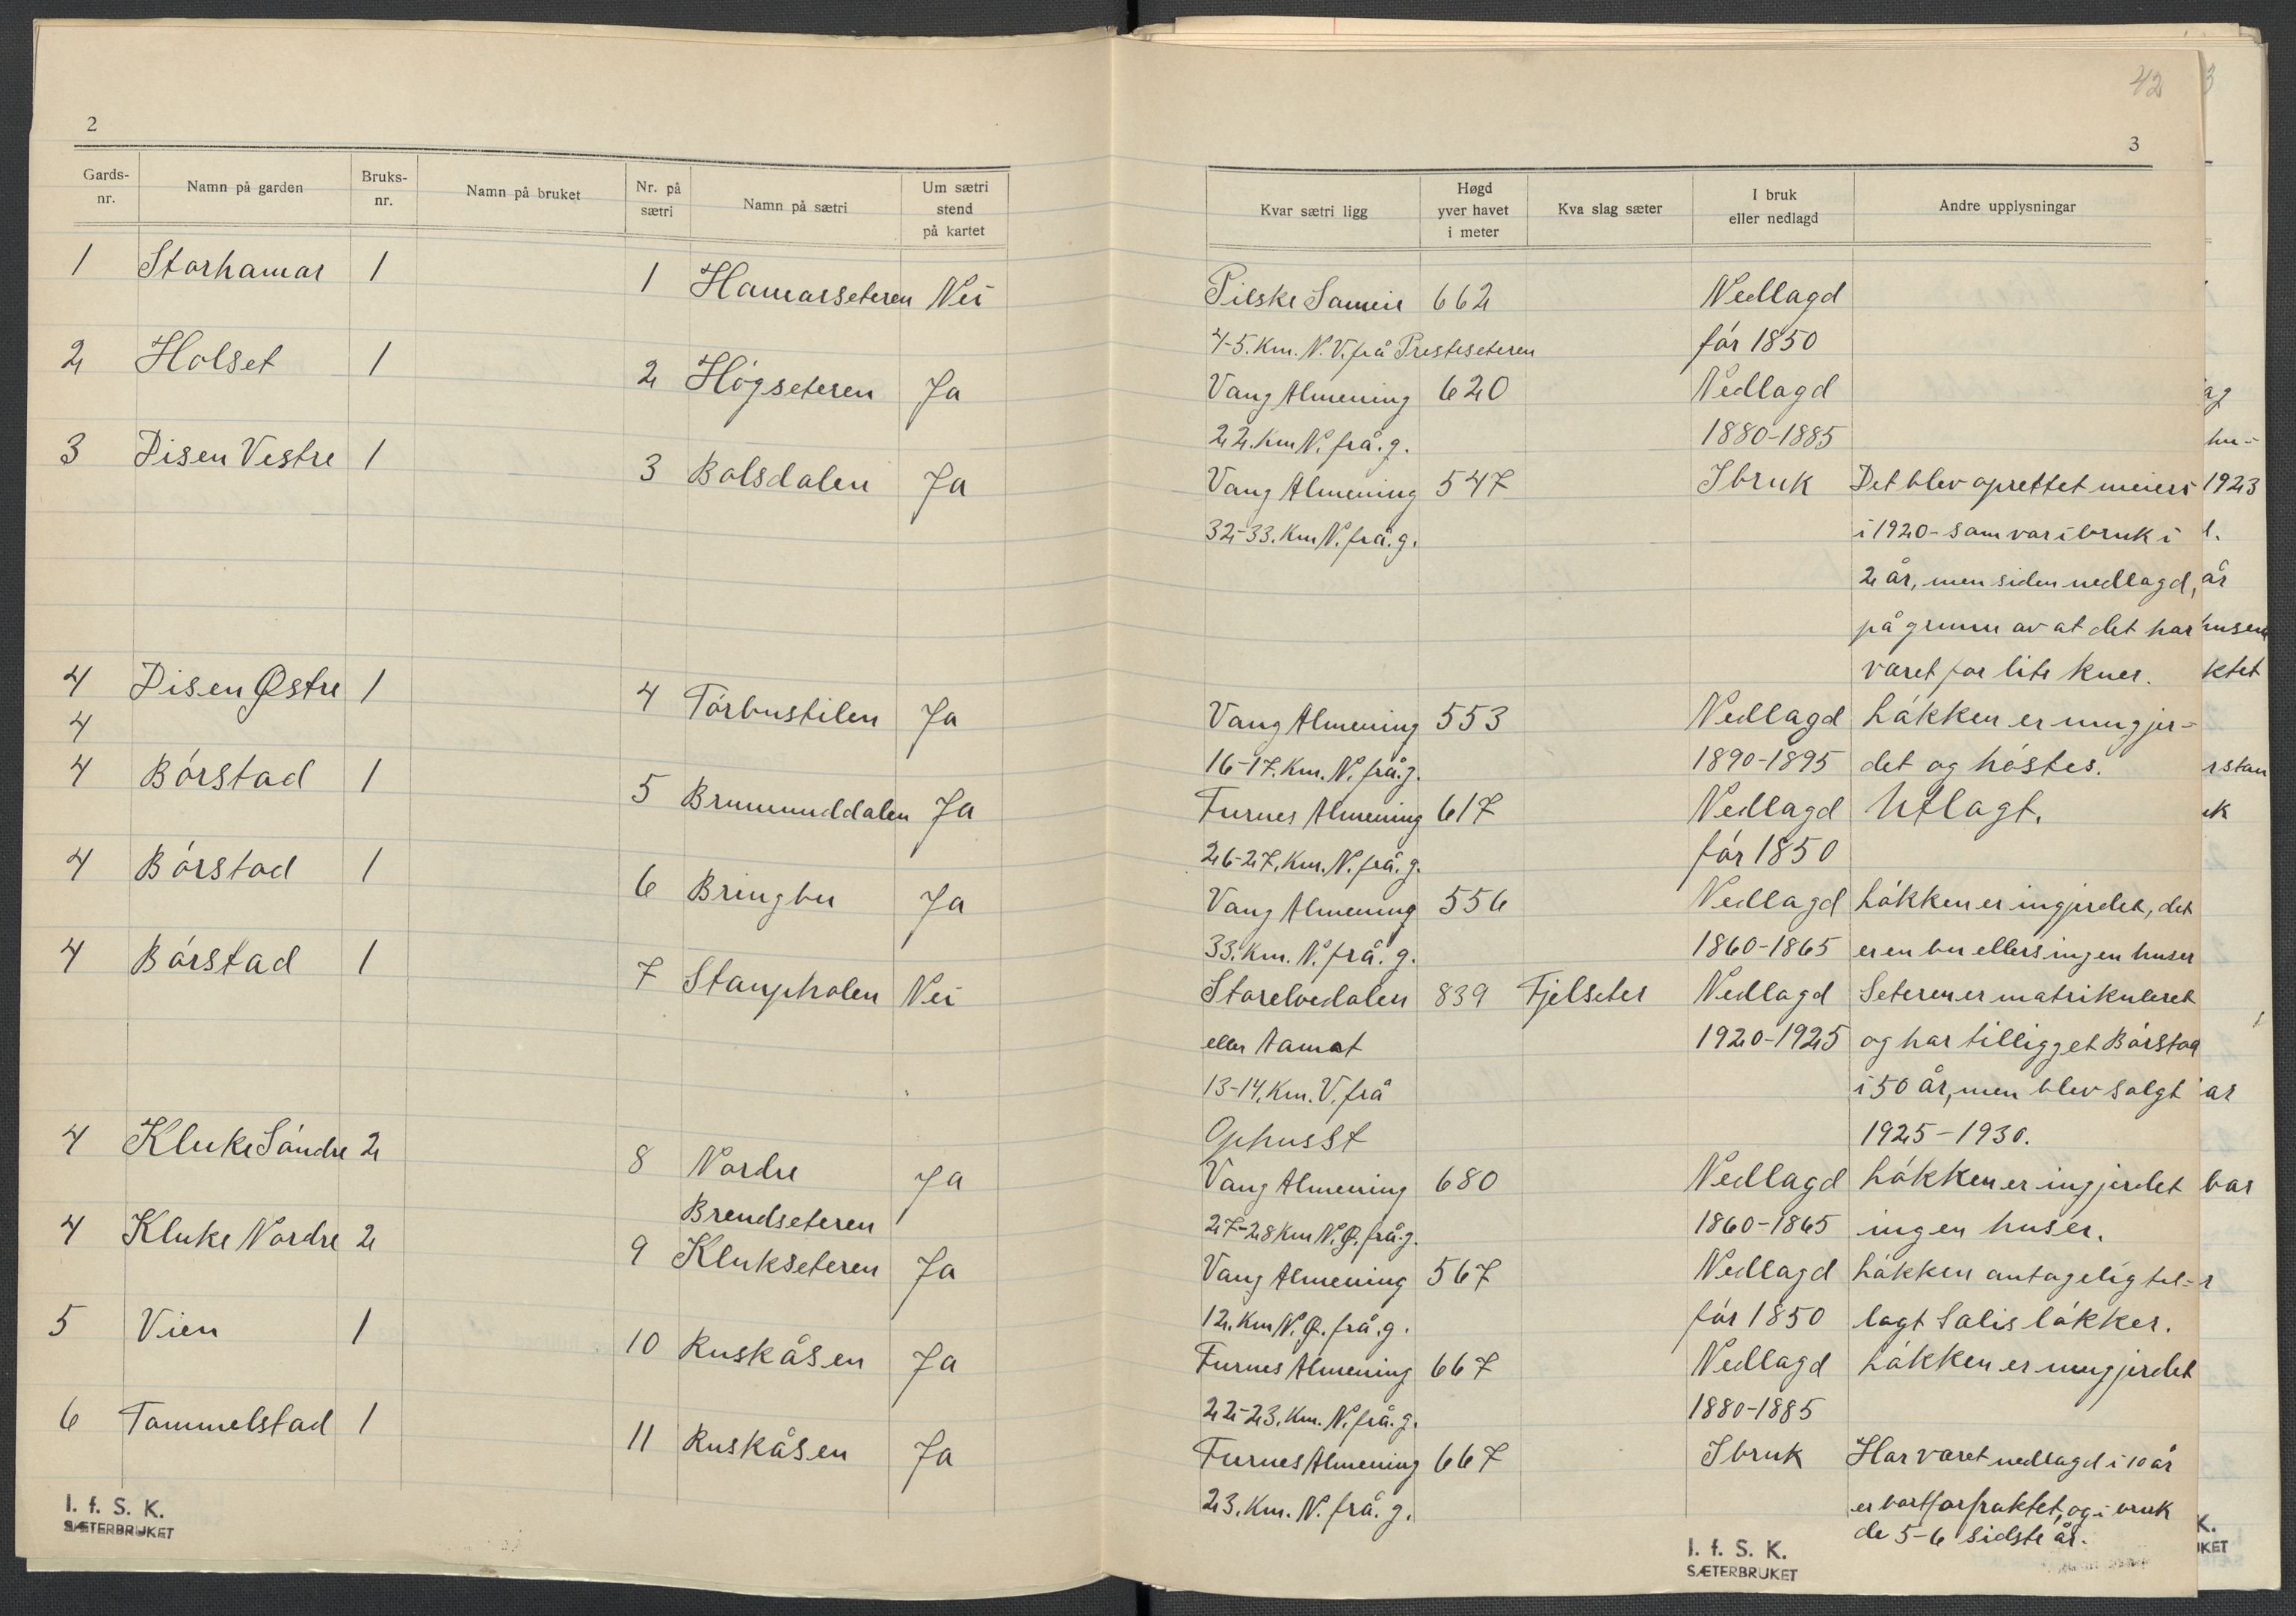 42
2
Gards-nr. Namn på garden Bruks-nr. Namn på bruket Nr. på sætri Namn på sætri Um sætri stend på kartet
1 Storhamar 1 1 Hamarseteren Nei
2 Holset 1 2 Høgseteren Ja
3 Disen Vestre 1 3 Bolsdalen Ja
4 Disen Østre 1 4 Torbustilen Ja
4
4 Børstad 1 5 Brumunddalen Ja
4 Børstad 1 6 Bringbu Ja
4 Børstad 1 7 Staupholen Nei
4 Kluke Søndre 2 8 Nordre Ja
Brendseteren
4 Kluke Nordre 2 9 Klukseteren Ja
5 Vien 1 10 Ruskåsen Ja
6 Tommelstad 1 11 Ruskåsen Ja
I. f. S. K.
SÆTERBRUKET
3
Kvar sætri ligg Høgd yver havet i meter Kva slag sæter I bruk eller nedlagd Andre upplysningar
Pilske Sameie 662 Nedlagd
4-5. Km. N.V. frå Presteseteren før 1850
Vang Almening 620 Nedlagd
22. Km N. frå. g. 1880-1885
Vang Almening 547 I bruk Det blev oprettet meieri
32-33. Km N. frå. g. i 1920- som var i bruk i
2 år, men siden nedlagd,
på grunn av at det har
været for lite kuer.
Vang Almening 553 Nedlagd Løkken er inngjer-
16-17. Km. N. frå. g. 1890-1895 det og høstes.
Furnes Almening 617 Nedlagd Utlagt.
26-27. Km. N. frå. g. før 1850
Vang Almening 556 Nedlagd Løkken er ingjerdet, det
33. Km. N. frå. g. 1860-1865 er en bu ellers ingen huser
Storelvedalen 839 Fjelseter Nedlagd Seteren er matrikuleret
eller Aamot 1920-1925 og har tilligget Børstad
13-14. Km. V. frå i 50 år, men blev solgt
Ophus St 1925-1930.
Vang Almening 680 Nedlagd Løkken er ingjerdet
27-28 Km N.Ø. frå. g. 1860-1865 ingen huser.
Vang Almening 567 Nedlagd Løkken antagelig til-
12. Km N.Ø. frå. g. før 1850 lagt Salis løkker.
Furnes Almening 667 Nedlagd Løkken er inngjerdet
22-23. Km. N. frå. g. 1880-1885
Furnes Almening 667 I bruk Har været nedlagd i 10 år
23. Km. N. frå. g. er bortforpaktet, og i bruk
de 5-6 sidste år.
I. f. S. K.
SÆTERBRUKET